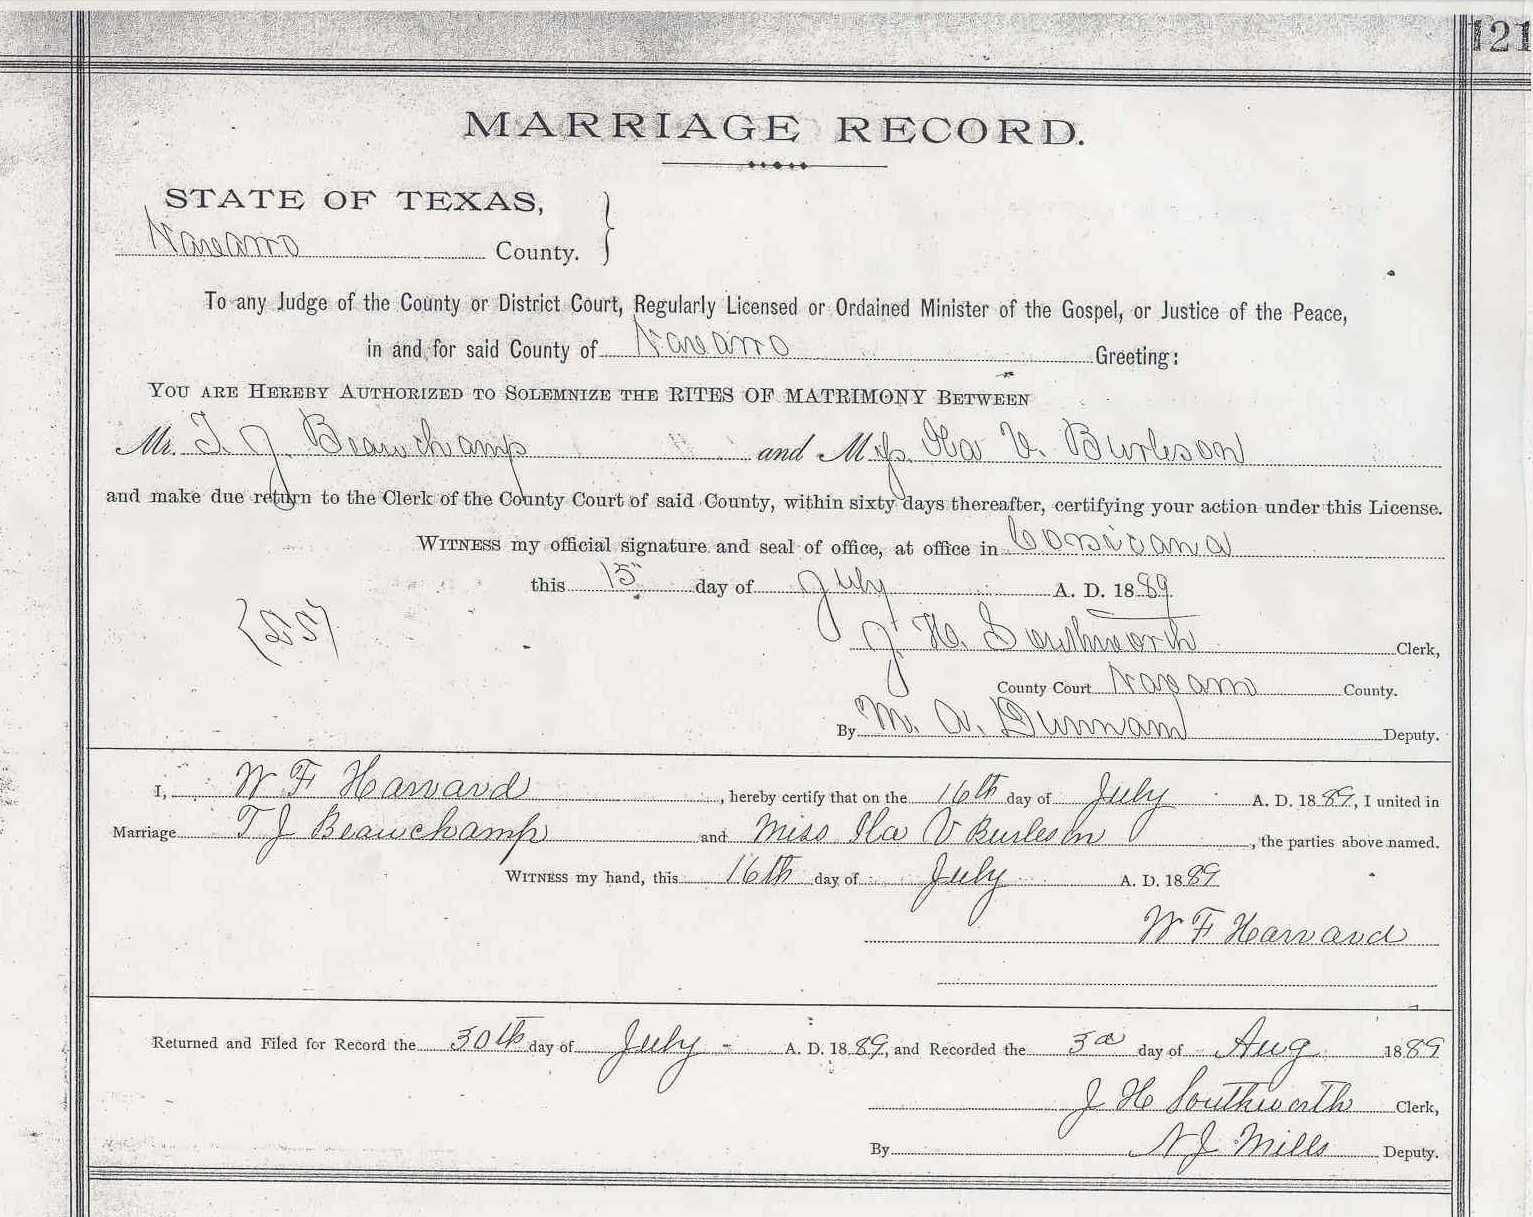 121
MARRIAGE RECORD.
STATE OF TEXAS,
Navarro County.
To any Judge of the County or District Court, Regularly Licensed or Ordained Minister of the Gospel, or Justice of the Peace,
in and for said County of Navarro Greeting:
YOU ARE HEREBY AUTHORIZED TO SOLEMNIZE THE RITES OF MATRIMONY BETWEEN
Mr. T. J. Beauchamp and Miss Ila V. Burleson
and make due return to the Clerk of the County Court of said County, within sixty days thereafter, certifying your action under this License.
WITNESS my official signature and seal of office, at office in Corsicana
this 15 day of July A. D. 1889
J. H. Southworth Clerk,
County Court Navarro County.
By M. A. Dunnam Deputy.
I, W F Harvard, hereby certify that on the 16th day of July A. D. 1889, I united in
Marriage T J Beauchamp and Miss Ila V Burleson, the parties above named.
WITNESS my hand, this 16th day of July A. D. 1889
W F Harvard
Returned and Filed for Record the 30th day of July - A. D. 1889, and Recorded the 3d day of Aug 1889
J H Southworth Clerk,
By N J Mills Deputy.